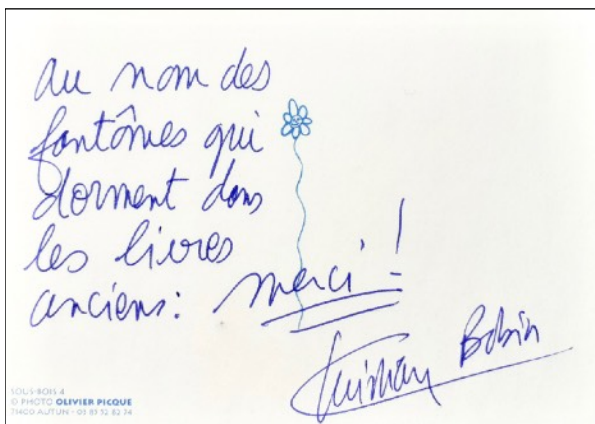 au nom des
fantômes qui
dorment dans
les livres
anciens: merci!
Christian Bobin
SOUS-BOIS 4
© PHOTO OLIVIER PICQUE
71400 AUTUN - 03 85 52 82 74